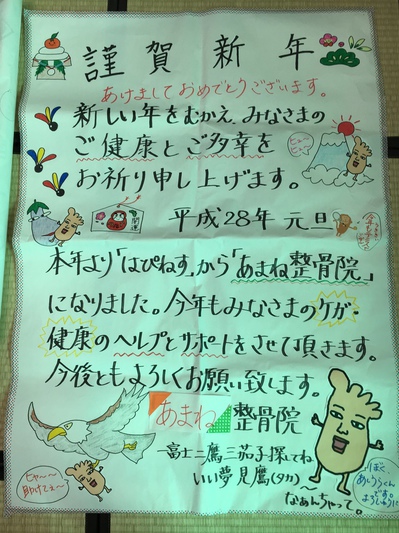 謹賀新年
あけましておめでとうございます。
新しい年をむかえ、みなさまの
ご健康とご多幸を
お祈り申し上げます。
開運
平成28年 元旦
本年より「はぴねす」から「あまね整骨院」
になりました。今年もみなさまのケガ・
健康のヘルプとサポートをさせて頂きます。
今後ともよろしくお願い致します。
あまね整骨院
一富士二鷹三茄子探してね
いい夢見鷹(タカ)〜
なぁんちゃって。
ひゃ〜〜
助けてぇ〜